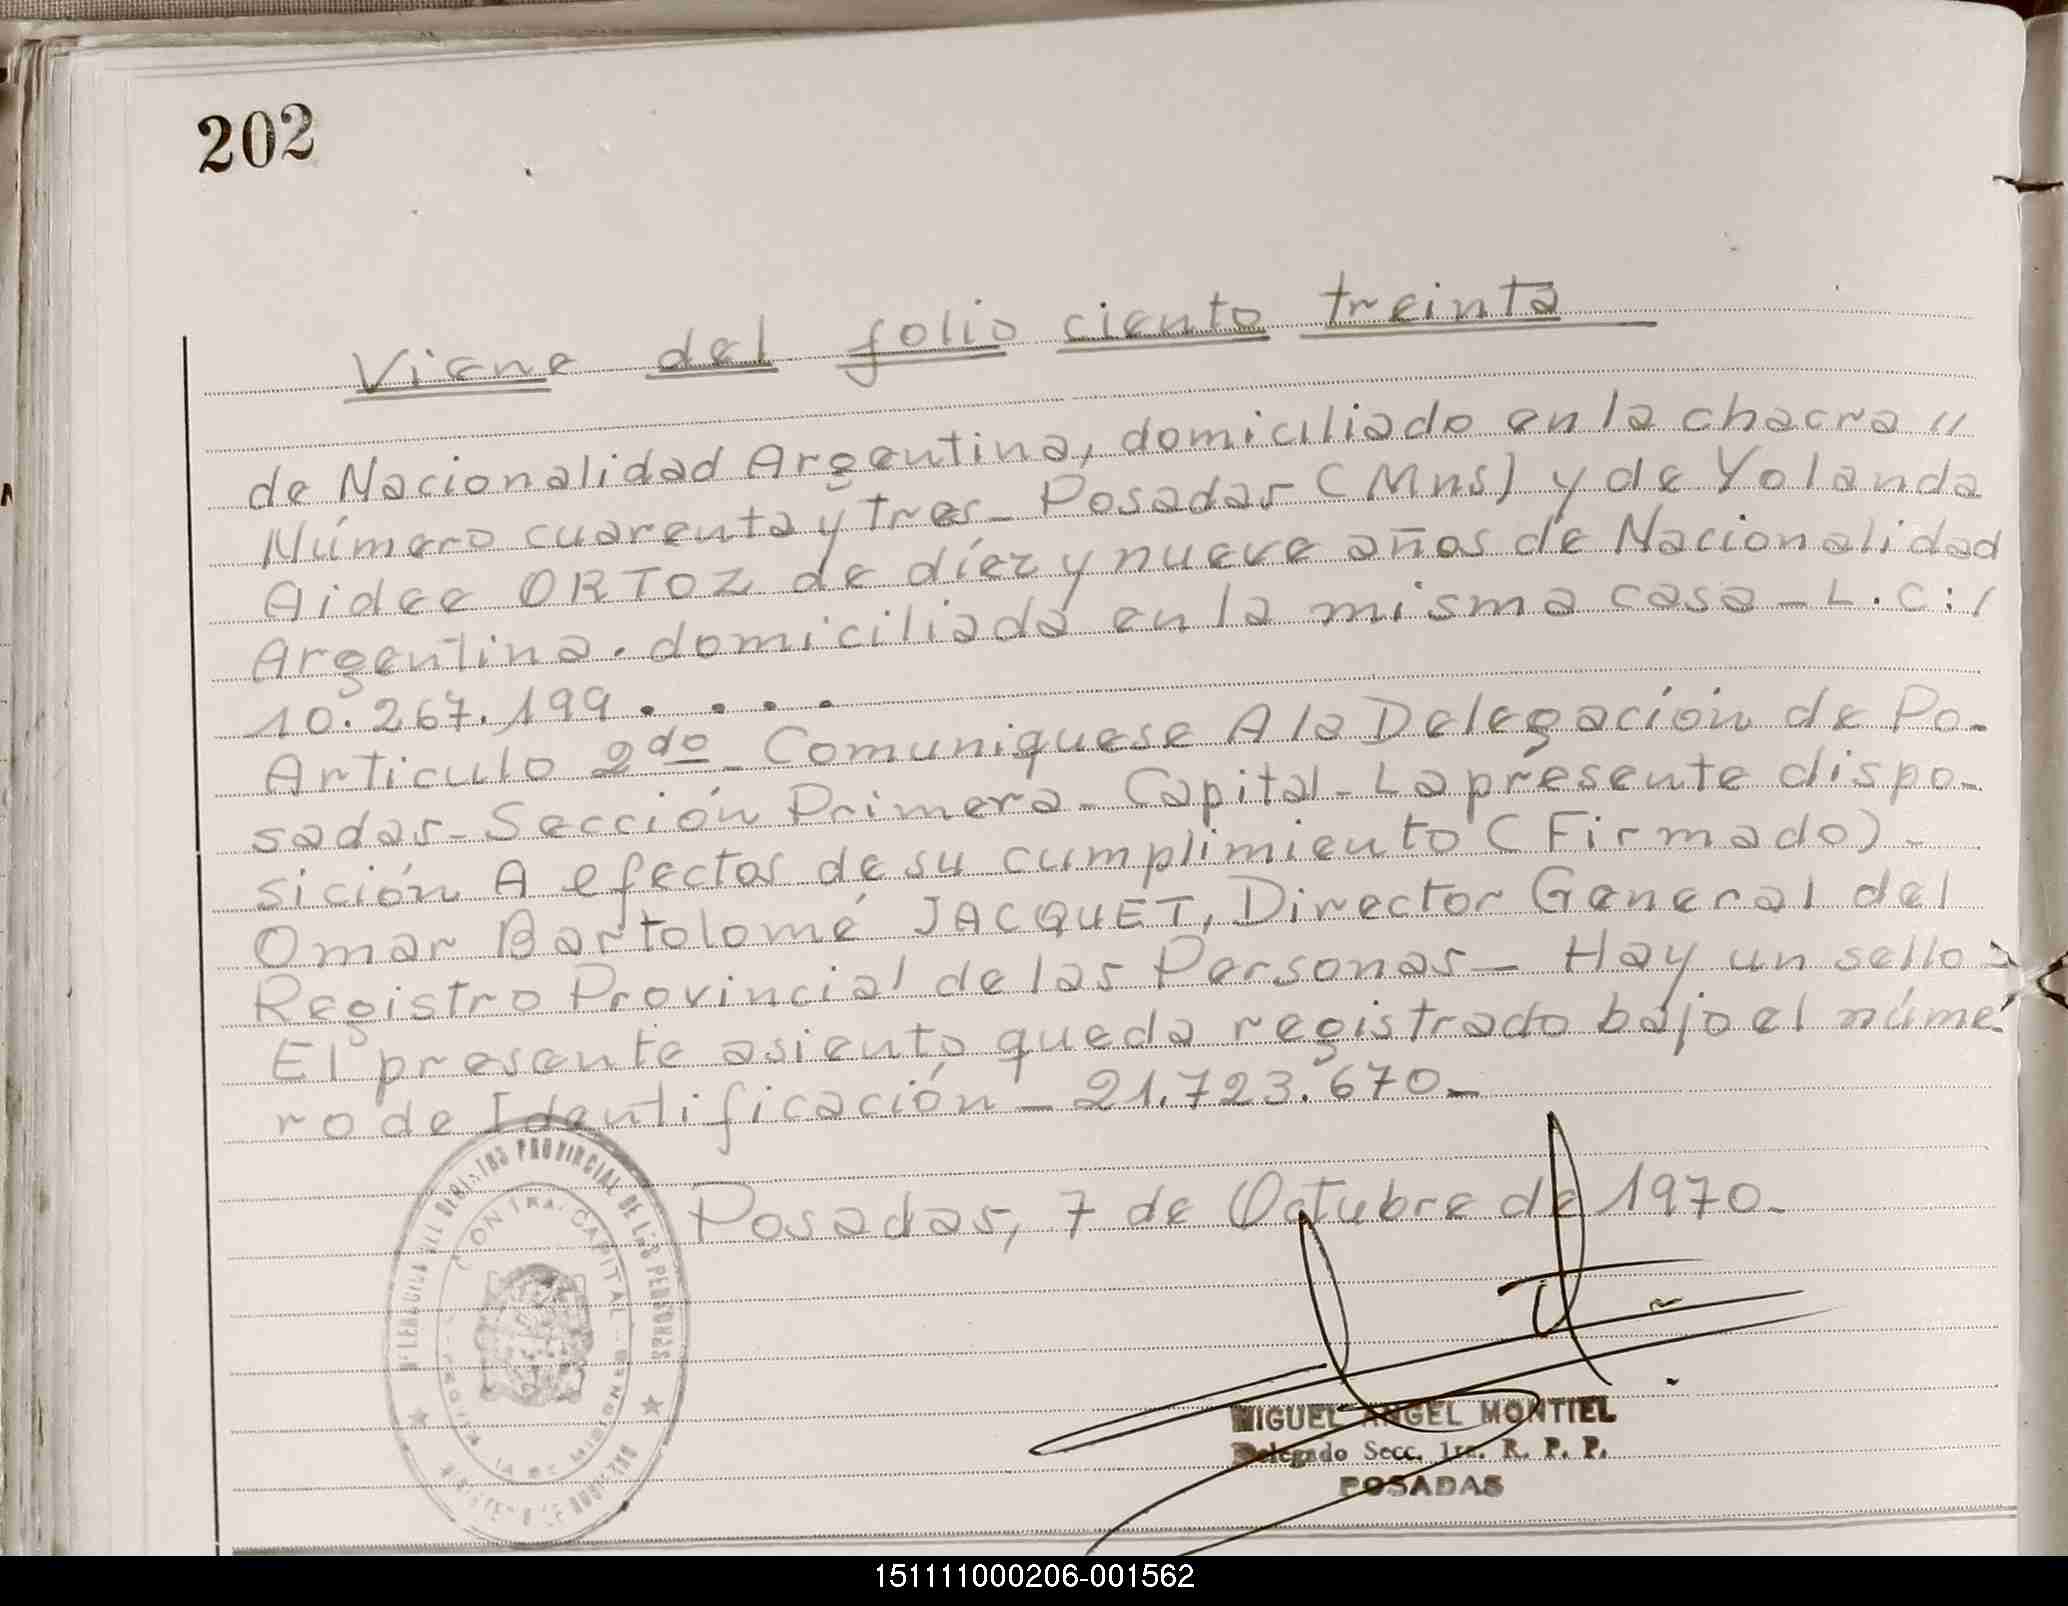 202
Viene del folio ciento treinta
de Nacionalidad Argentina, domiciliado en la chacra //
Número cuarenta y tres_ Posadas (Mns) y de Yolanda
Aidee ORTOZ de diez y nueve años de Nacionalidad
Argentina. domiciliada en la misma casa_ L.C:/
10.267.199. . . .
Articulo 2do_ Comuniquese A la Delegación de Po-
sadas_ Sección Primera_ Capital_ La presente dispo-
sición A efectos de su cumplimiento (Firmado)-
Omar Bartolomé JACQUET, Director General del
Registro Provincial de las Personas_ Hay un sello-
El presente asiento queda registrado bajo el núme-
ro de Identificación_ 21.723.670_
Posadas, 7 de Octubre de 1970_
REGISTRO PROVINCIAL DE LAS PERSONAS
CAPITAL
MIGUEL ANGEL MONTIEL
Delegado Secc. 1ra. R. P. P.
POSADAS
151111000206-001562